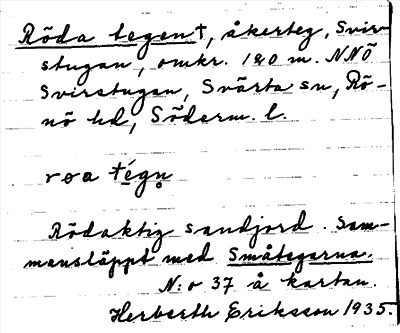 Röda tegen†, åkerteg, Svir-
stugan, omkr. 180 m. NNÖ
Svirstugan, Svärta sn, Rö-
nö hd, Söderm. l.
røa tégn̥
Rödaktig sandjord. Sam-
mansläppt med Småtegarna.
N:o 37 å kartan.
Herberth Eriksson 1935.